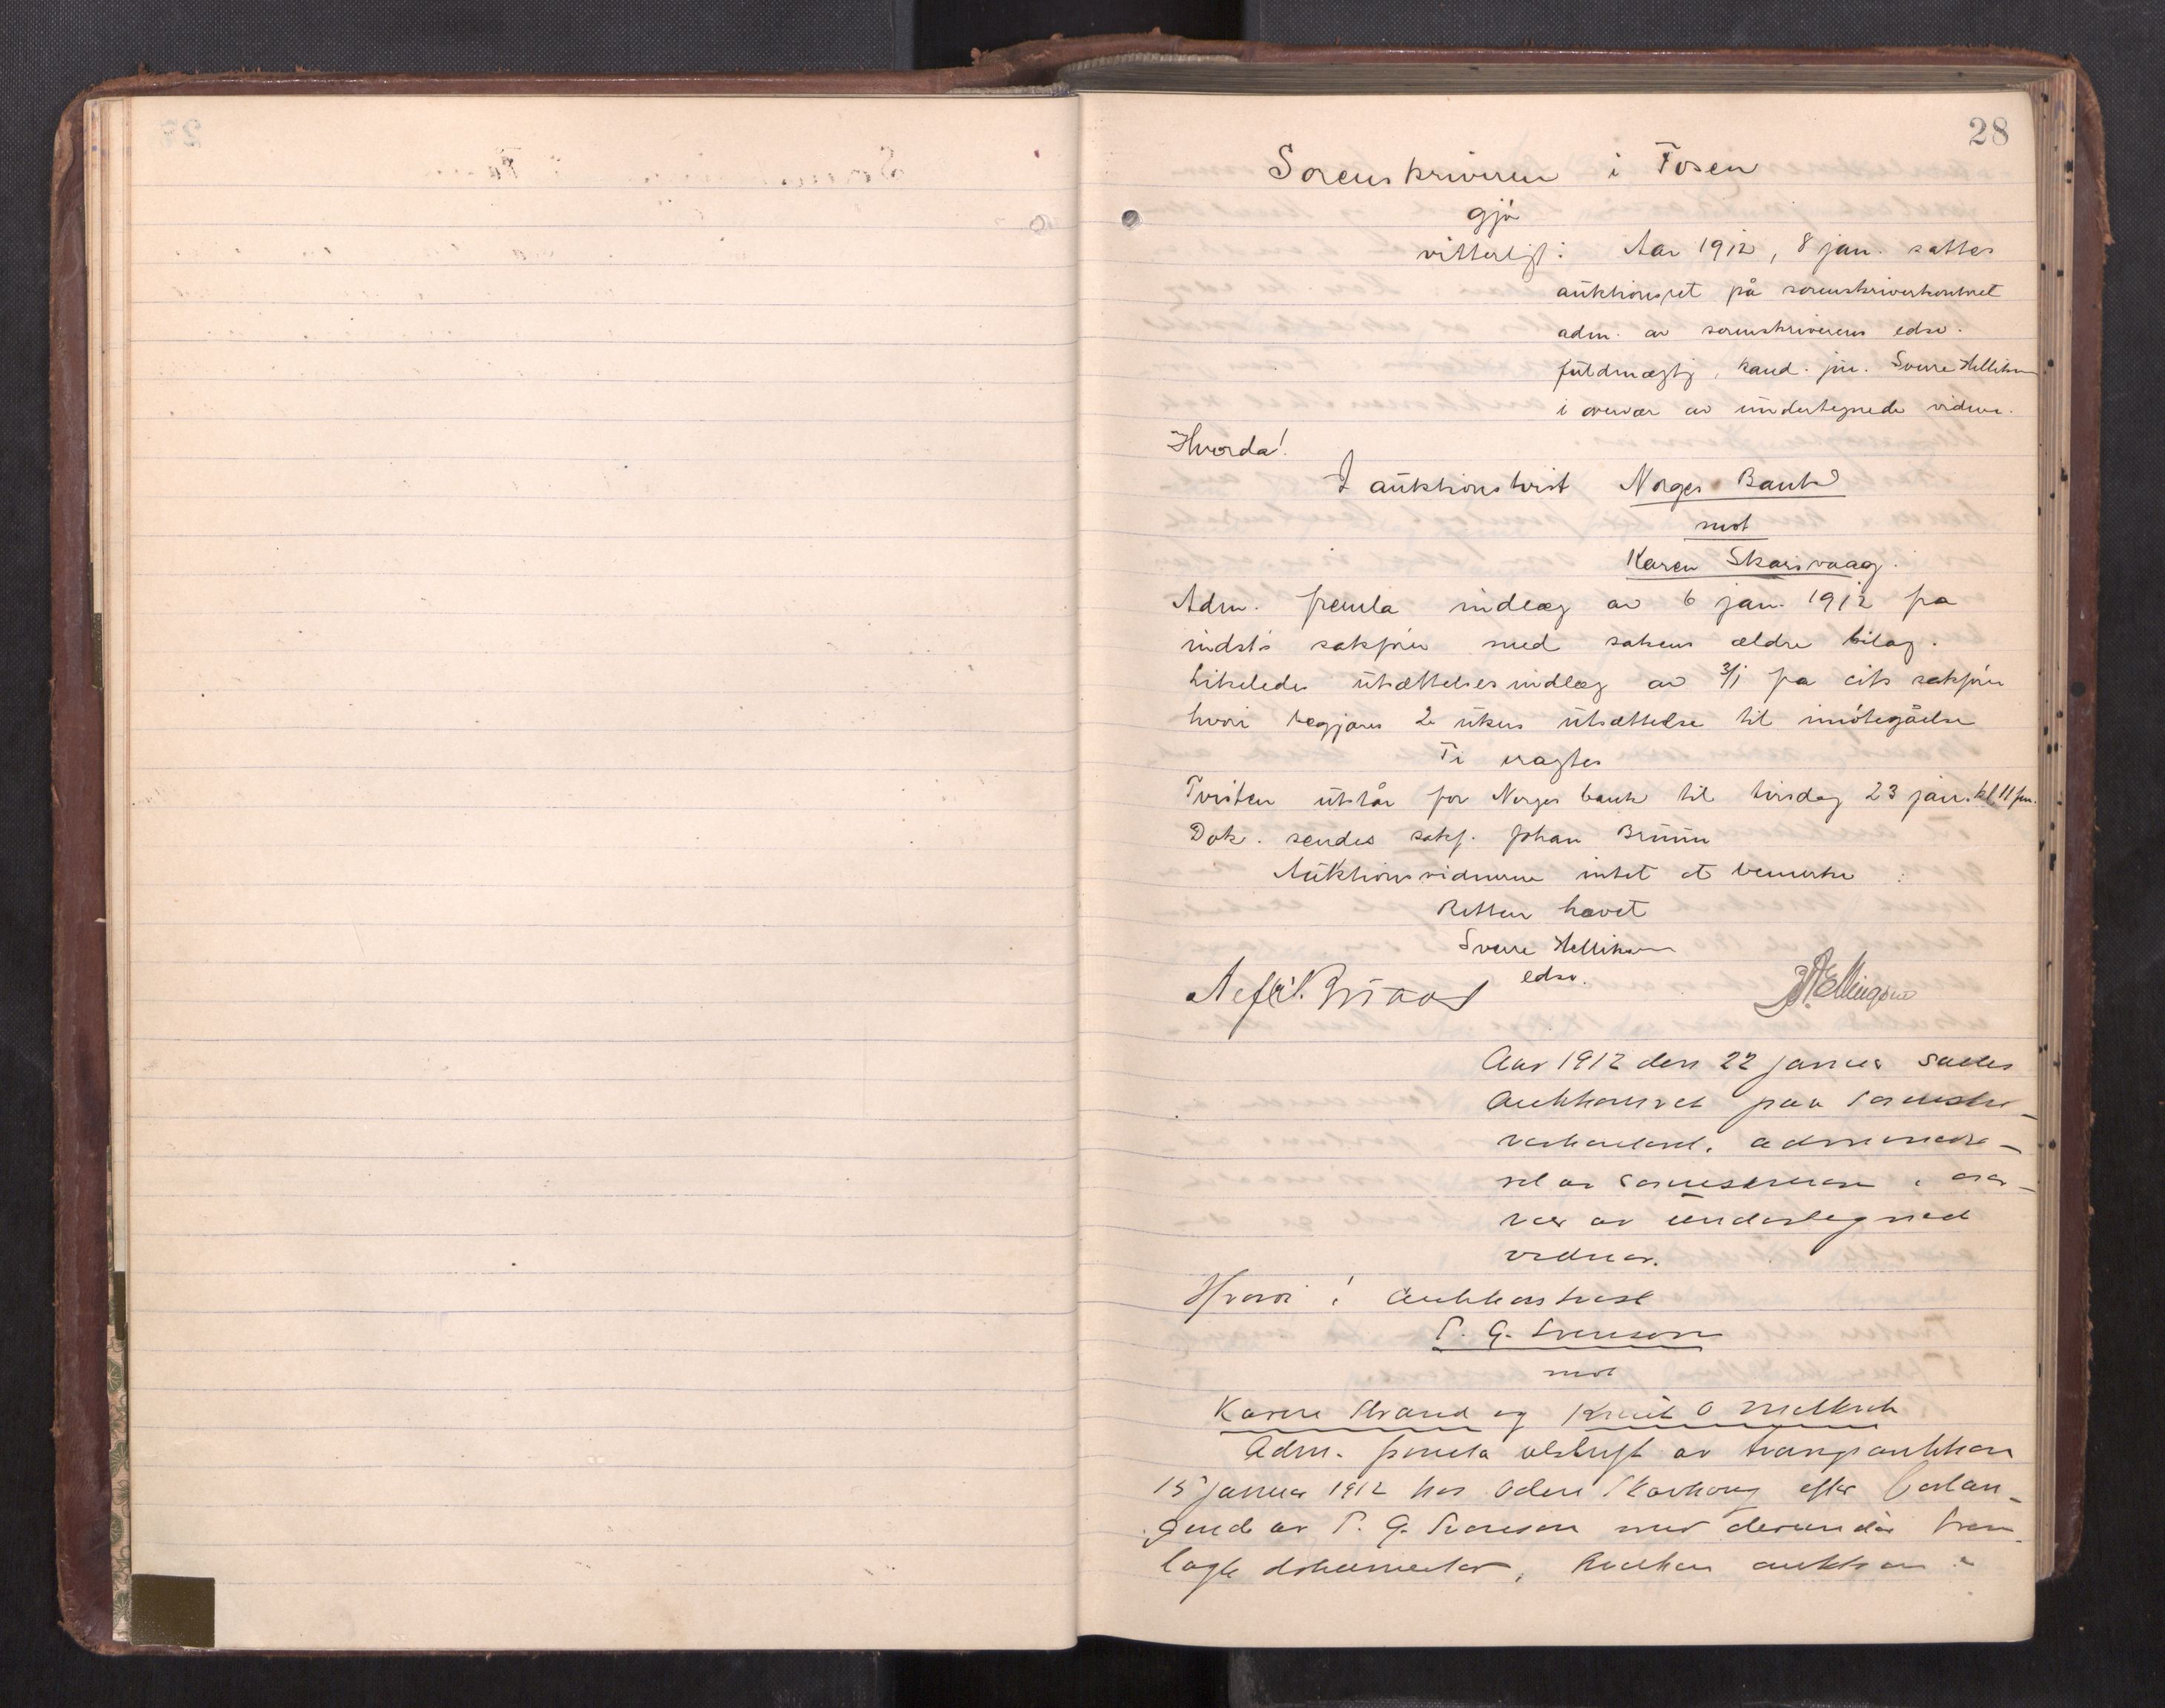 28
Sorenskriveren i Fosen
gjör
vitterligt: Aar 1912, 8 jan. sattes
auktionsret på sorenskriverkontoret
adm. av sorenskriverens edsv.
fuldmægtig, kand. jur. Sverre
i overvær av undertegnede vidner.
Hvorda!
I auktionstvist Norges Bank
mot
Karen Skarsvaag.
Adm. fremla indlæg av 6 jan. 1912 fra
sakfører med sakens ældre bilag.
Likeledes utsættelsesindlæg av 3/1 fra cits sakfører
hvori begjæres 2 ukers utsættelse til imøtegåelse
Ti eragtes
Tvisten utstår for Norges bank til tirsdag 23 jan. kl. 11 fm.
Dok. sendes sakf. Johan Bruun
Auktionsvidnerne intet at bemerke
Retten hævet
Sverre
edsv.
Ellingsen
Aar 1912 den 22 januar sattes
Auktionsret paa sorenskri-
verkontoret, administre-
ret av sorenskriveren i over-
vær av undertegnede
vidner.
Hvori i auktionstvist
P. G. Svenson
mot
Karen Strand og Knut O
Adm. fremla utskrift av tvangsauktion
15 januar 1912 hos efter forlan-
gende av P. G. Svenson med derunder frem-
lagte dokumenter, auktion i